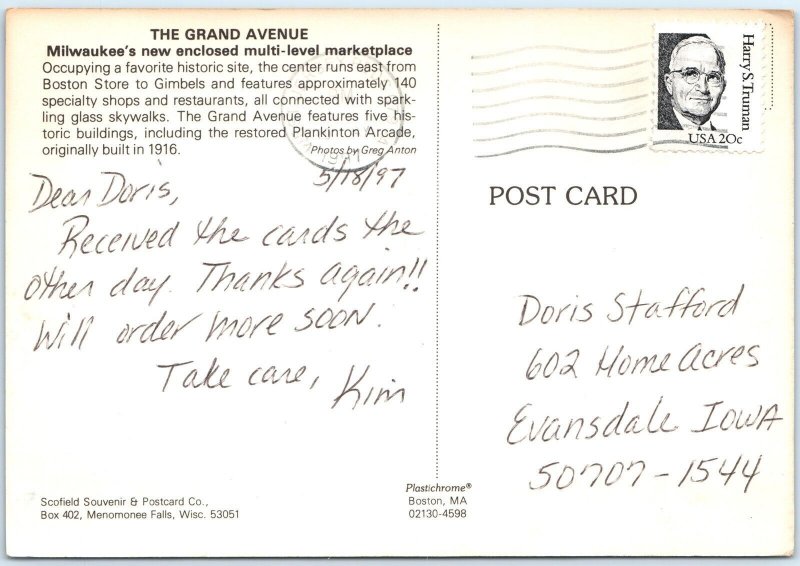 THE GRAND AVENUE
Milwaukee's new enclosed multi-level marketplace
Occupying a favorite historic site, the center runs east from
Boston Store to Gimbels and features approximately 140
specialty shops and restaurants, all connected with spark-
ling glass skywalks. The Grand Avenue features five his-
toric buildings, including the restored Plankinton Arcade,
originally built in 1916.
Photos by Greg Anton
5/18/97
Dear Doris,
Received the cards the
other day. Thanks again!!
Will order more soon.
Take care, Kim
Scofield Souvenir & Postcard Co.,
Box 402, Menomonee Falls, Wisc. 53051
Plastichrome®
Boston, MA
02130-4598
Harry S. Truman
USA 20c
POST CARD
Doris Stafford
602 Home Acres
Evansdale Iowa
50707-1544